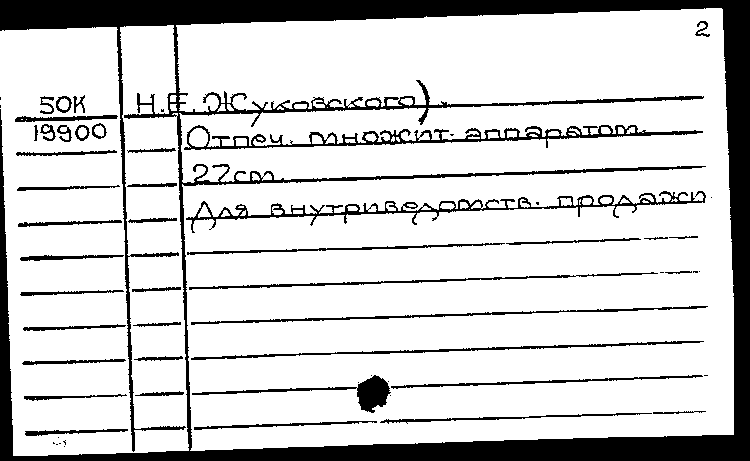 2
50К Н.Е. Жуковского).
19900 Отпеч. множит. аппаратом.
27см.
Для внутриведомств. продажи